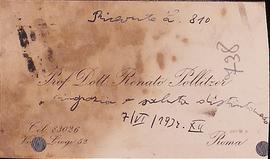 Ricevuto L. 810
738
Prof. Dott. Renato Pollitzer
ringrazia e saluta distintamente
7/VI/1934. XII
Tel. 83026
52
Roma